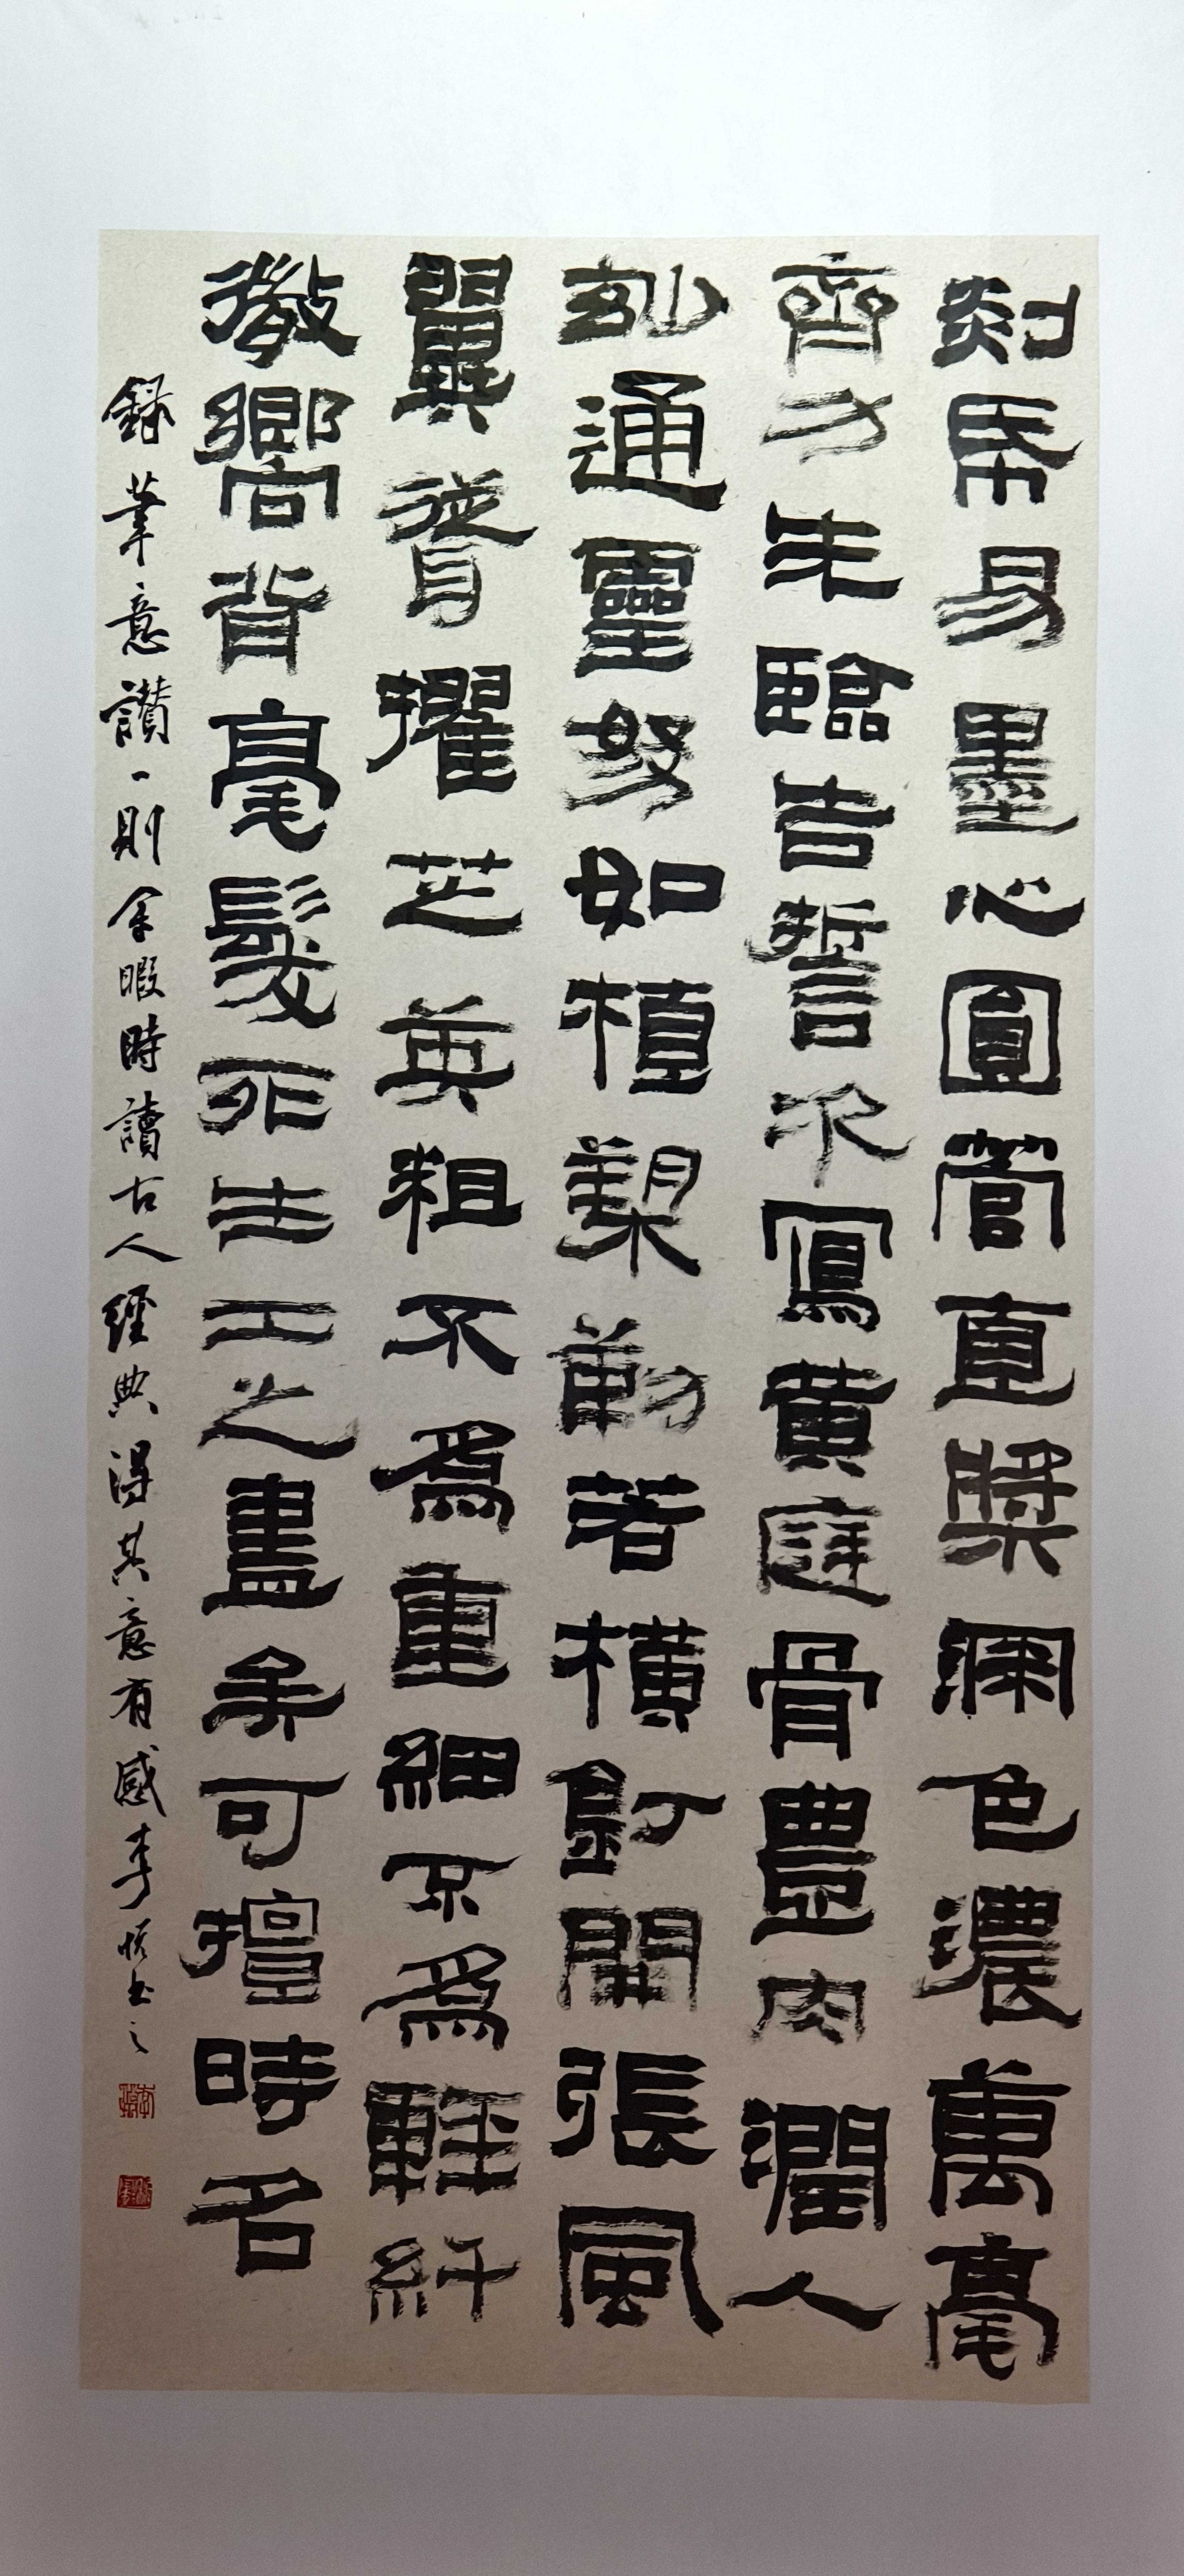 剡帋易墨心圓管直漿深色濃萬毫
齊力先臨告誓次寫黃庭骨豊肉潤入
玅通靈努如植槊勒若橫釘開張鳳
翼聳擢芝英粗不爲重細不爲輕纤
微嚮背毫髮死生工之盡矣可擅時名
錄筆意讚一則余暇時讀古人經典得其意有感李書之